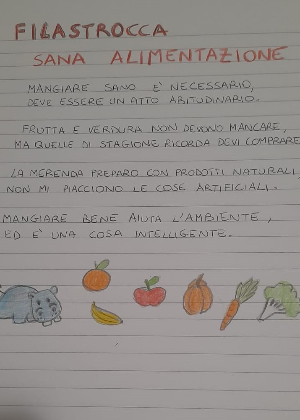 FILASTROCCA
SANA ALIMENTAZIONE
MANGIARE SANO E' NECESSARIO,
DEVE ESSERE UN ATTO ABITUDINARIO.
FRUTTA E VERDURA NON DEVONO MANCARE,
MA QUELLE DI STAGIONE RICORDA DEVI COMPRARE
LA MERENDA PREPARO CON PRODOTTI NATURALI
NON MI PIACCIONO LE COSE ARTIFICIALI.
MANGIARE BENE AIUTA L'AMBIENTE,
ED E' UNA COSA INTELLIGENTE.